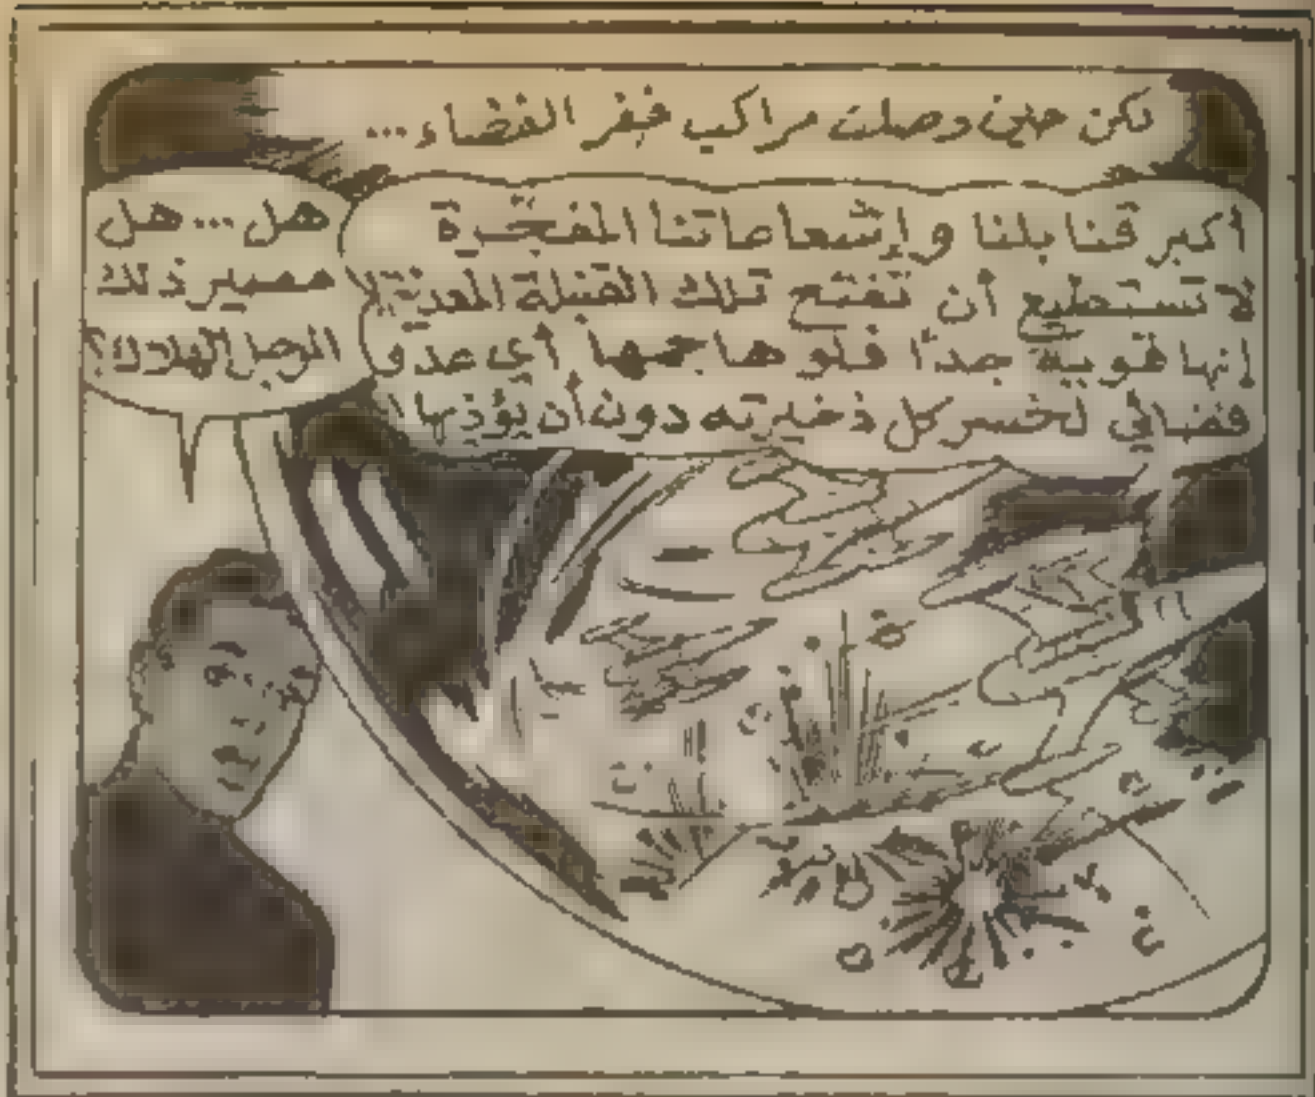 لكن حين وصلت مراكب خفر الفضاء...
أكبر قنابلنا وإشعاعاتنا المفجّرة
لا تستطيع أن تفتح تلك القنبلة المعدنية!
إنها قوية جدًا فلو هاجمها أي عدو
فضائي لخسر كل ذخيرته دون أن يؤذيها!
هل... هل
مصير ذلك
الرجل الهلاك؟